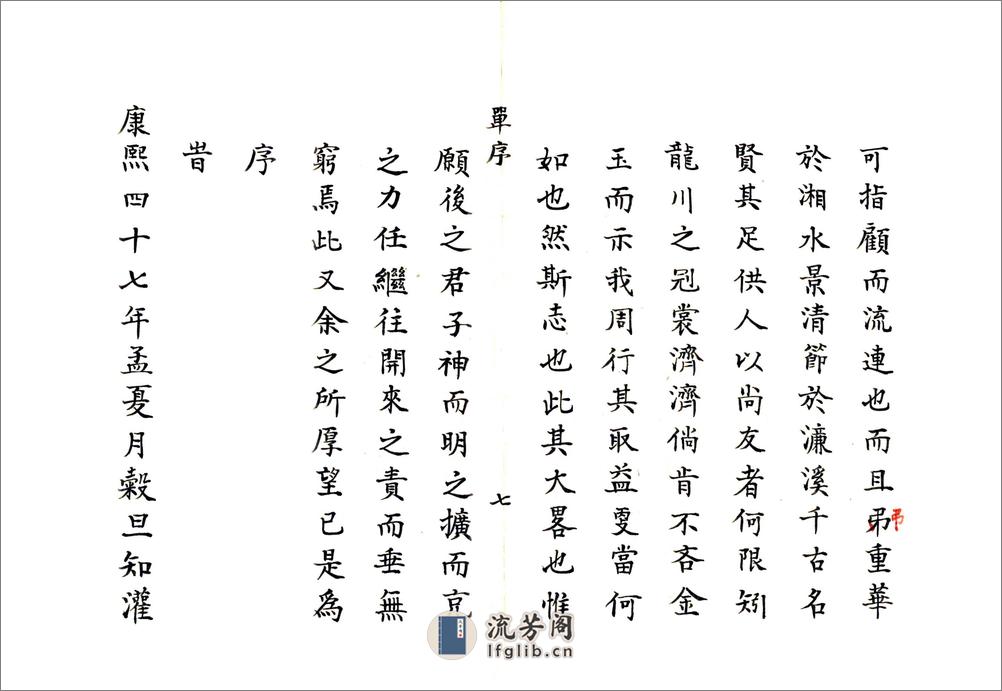 可指顧而流連也而且弟重華
弔
於湘水景清節於濂溪千古名
賢其足供人以尚友者何限矧
龍川之冠裳濟濟倘肯不吝金
玉而示我周行其取益更當何
如也然斯志也此其大畧也惟
單序
七
願後之君子神而明之擴而充
之力任繼往開來之責而垂無
窮焉此又余之所厚望已是為
序
旹
康熙四十七年孟夏月穀旦知灌
流芳阁
lfglib.cn